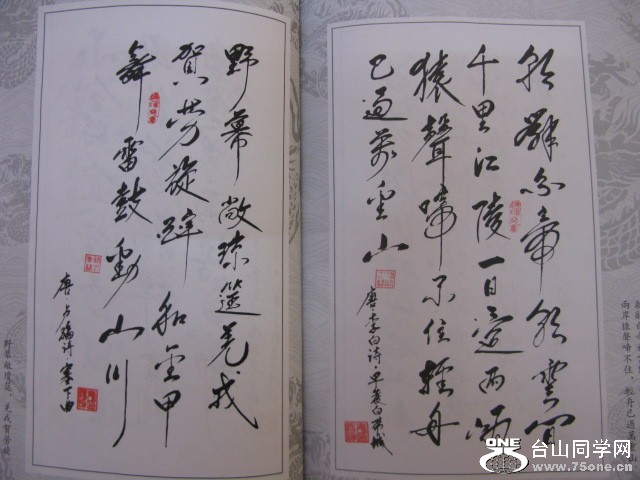 朝辭白帝彩雲間
千里江陵一日還兩岸
猿聲啼不住輕舟
已過萬重山
唐李白詩·早發白帝城
兩岸猿聲啼不住，輕舟已過萬重山
野幕敞瓊筵羌戎
賀勞旋醉和金甲
舞雷鼓動山川
唐卢綸詩塞下曲
野幕敞瓊筵，羌戎賀勞旋
ONE
台山同学网
www.75one.cn